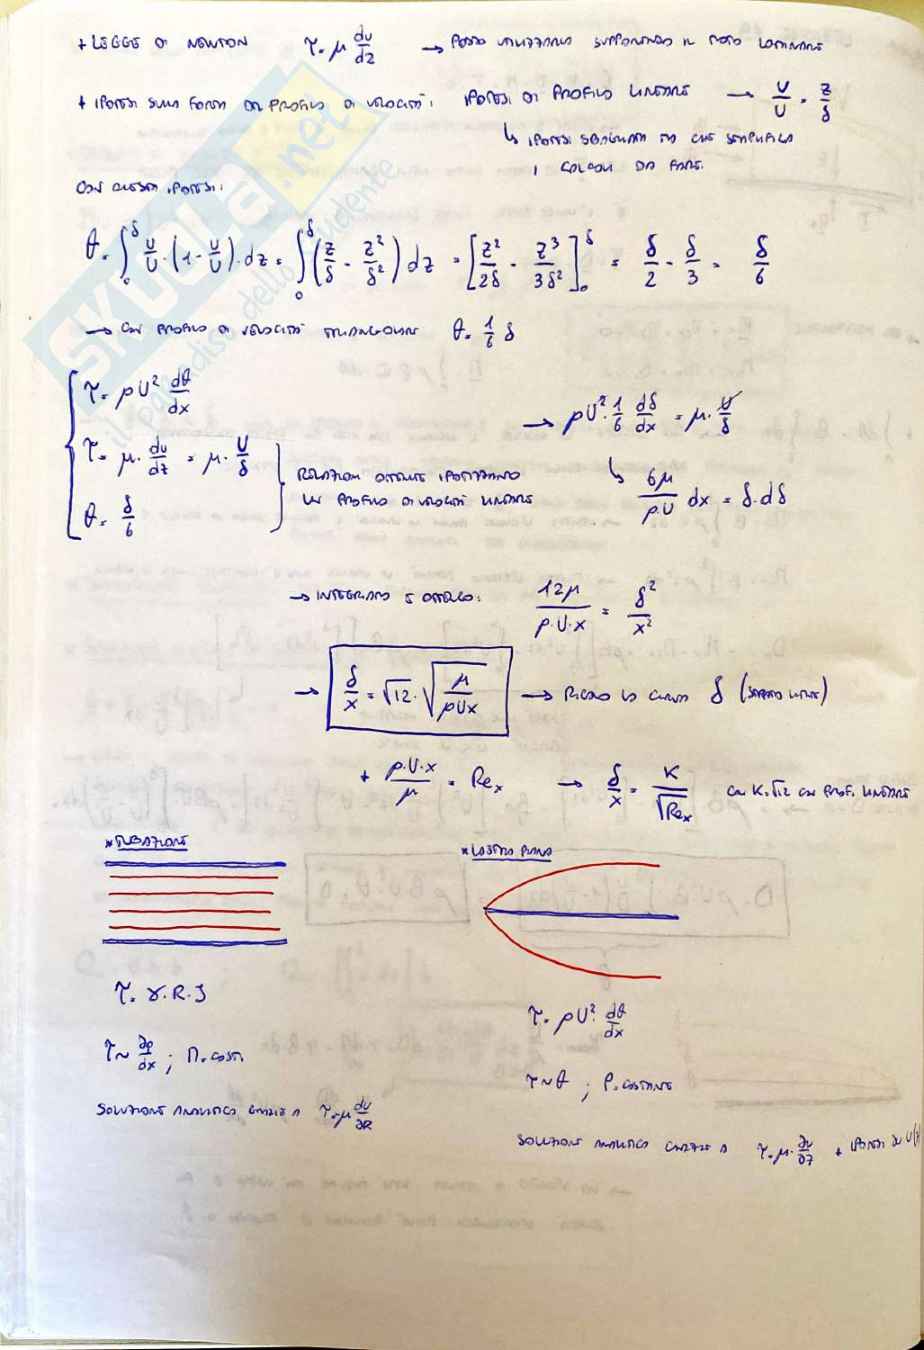 + LEGGE DI NEWTON τ = μ du/dz → POSSO UTILIZZARLA SUPPONENDO IL MOTO LAMINARE
+ IPOTESI SULLA FORMA DEL PROFILO DI VELOCITÀ: IPOTESI DI PROFILO LINEARE → u/U = z/δ
↳ IPOTESI SBAGLIATA MA CHE SEMPLIFICA
I CALCOLI DA FARE.
CON QUESTA IPOTESI:
θ = ∫₀^δ u/U · (1 - u/U) · dz = ∫₀^δ (z/δ - z²/δ²) dz = [z²/2δ - z³/3δ²]₀^δ = δ/2 - δ/3 = δ/6
→ CON PROFILO DI VELOCITÀ TRIANGOLARE θ = 1/6 δ
τ = ρU² dθ/dx
→ ρU² · 1/6 dδ/dx = μ · U/δ
τ = μ · du/dz = μ · U/δ
RELAZIONI OTTENUTE IPOTIZZANDO
UN PROFILO DI VELOCITÀ LINEARE
↳ 6μ/ρ.U dx = δ · dδ
θ = δ/6
→ INTEGRANDO E OTTENGO: 12μ/ρ.U.x = δ²/x²
→ δ/x = √12 · √μ/ρUx → RICAVO LO CURVA δ (STRATO LIMITE)
+ ρ.U.x/μ = Reₓ → δ/x = K/√Reₓ CON K=√12 CON PROF. LINEARE
* TUBAZIONE
* LASTRA PIANA
τ = γ.R.J
τ = ρU² · dθ/dx
τ ~ ∂p/dx ;
τ ~ θ ; P. COSTANTE
SOLUZIONE ANALITICA GRAZIE A τ = μ du/∂R
SOLUZIONE ANALITICA GRAZIE A τ = μ · ∂u/∂z + IPOTESI SU U(z)
SKUOLA.net
il paradiso dello studente